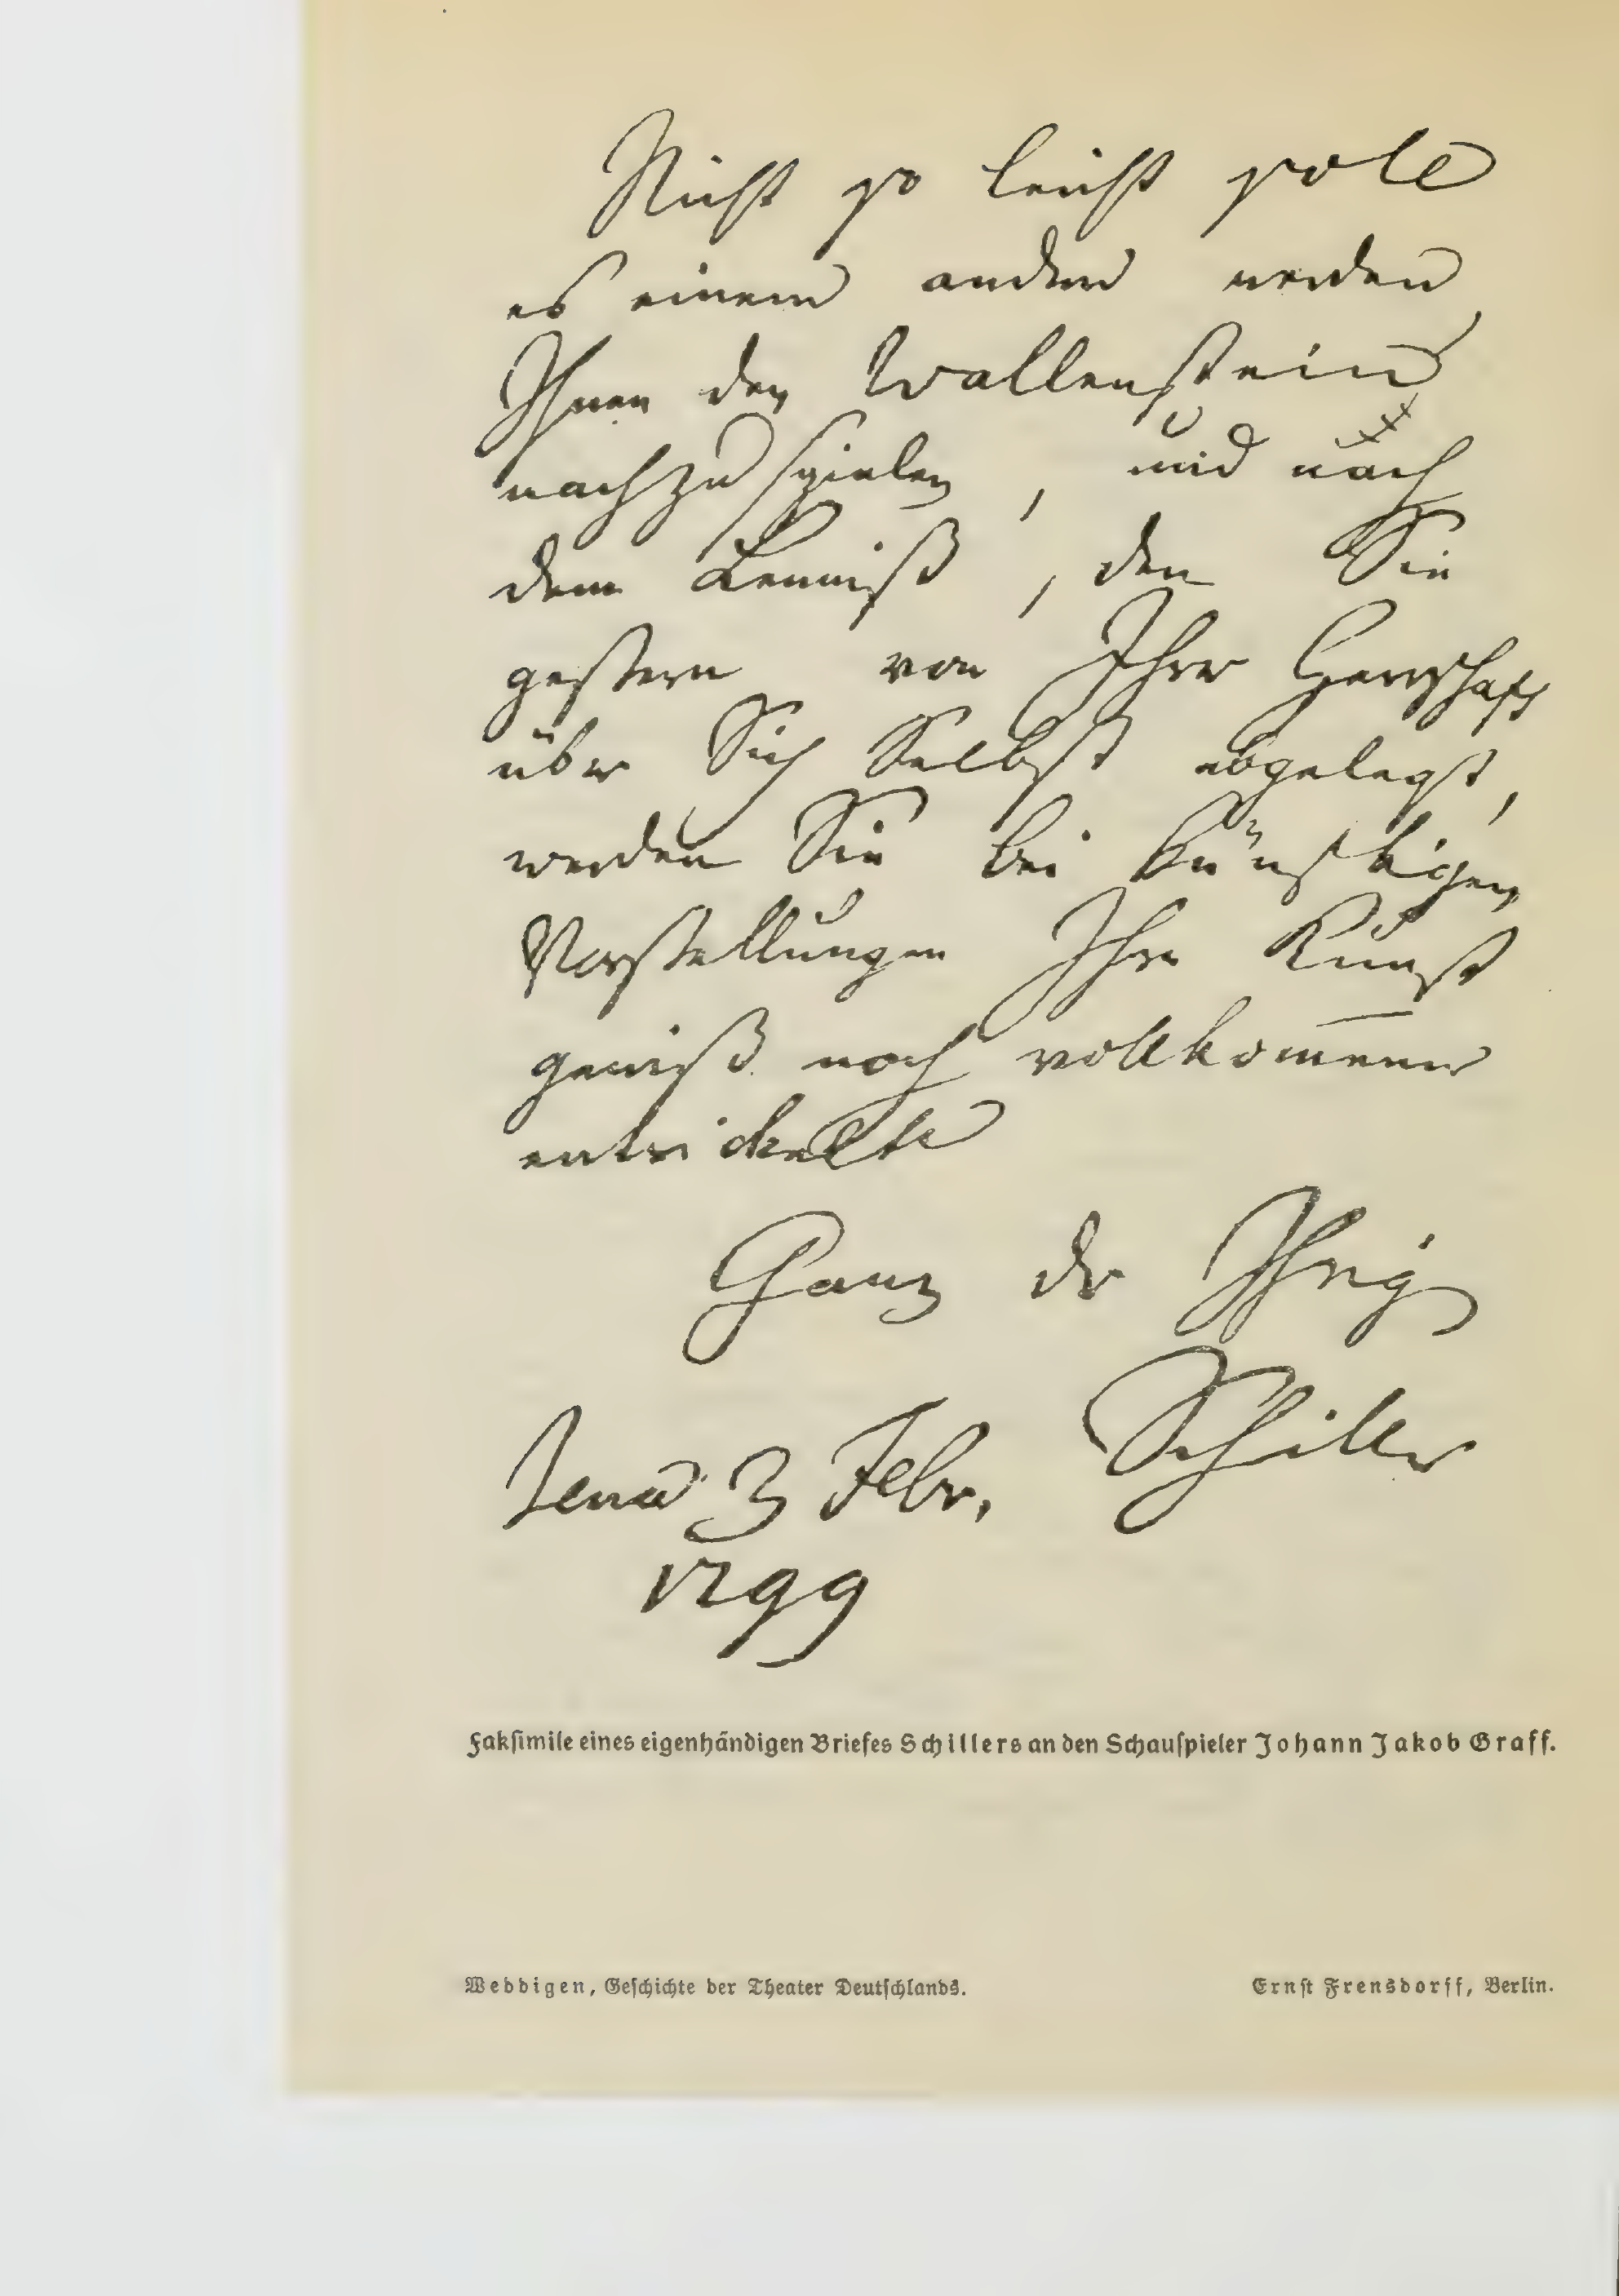 Nicht so leicht soll
es einem andern werden,
Ihnen den Wallenstein
nachzuspielen, und nach
dem Beweiß, den Sie
gestern von Ihrer Herrschaft
über Sich Selbst abgelegt,
werden Sie bei künftigen
Vorstellungen Ihre Kunst
gewiß noch vollkom̄ener
entwickeln
Ganz der Ihrige
Schiller
Jena 3 Febr.
1799
Fakſimile eines eigenhändigen Briefes Schillers an den Schauſpieler Johann Jakob Graff.
Weddigen, Geſchichte der Theater Deutſchlands. Ernſt Frensdorff, Berlin.